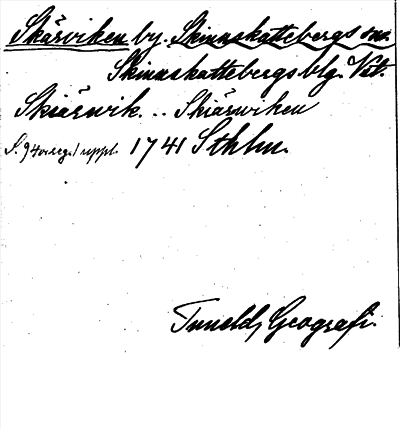 Skärviken by. Skinnskattebergs sn.
Skinnskattebergs blg. Vstl.
Skiärwik. .. Skiärwiken
S. 94 1741 Sthlm.
Tuneld, Geografi.